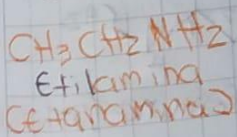 CH3 CH2 NH2
Etilamina
(etanamina)